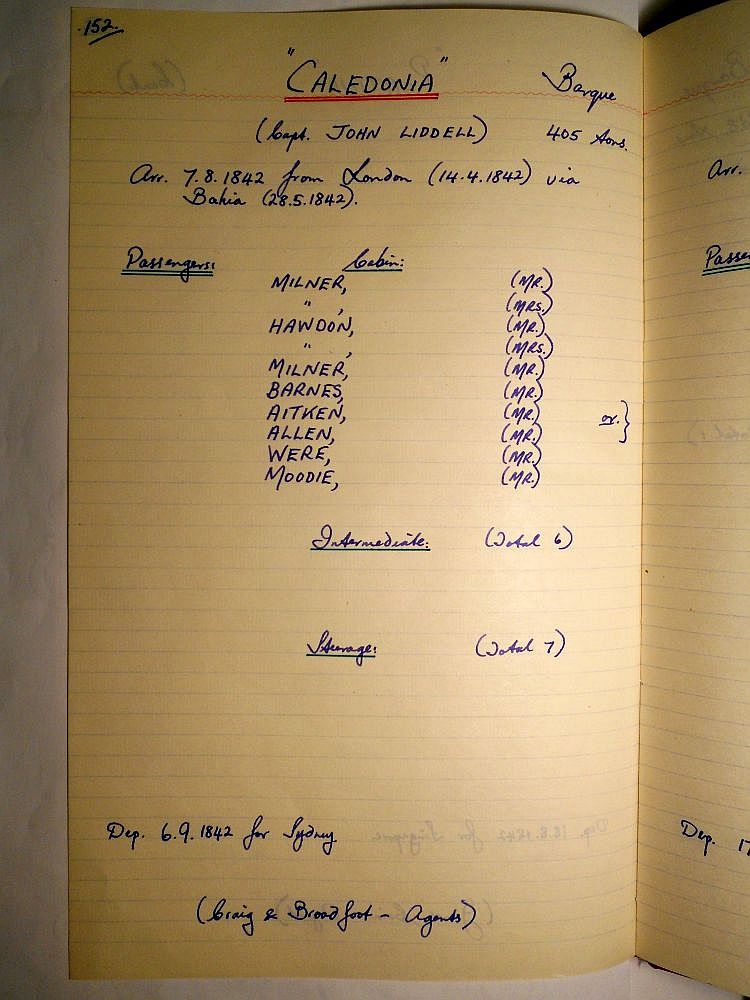 152.
"CALEDONIA" Barque
(Capt. JOHN LIDDELL) 405 tons.
Arr. 7.8.1842 from London (14.4.1842) via
Bahia (28.5.1842).
Passengers: Cabin:
MILNER, (MR.)
" , (MRS.)
HAWDON, (MR.)
" , (MRS.)
MILNER, (MR.)
BARNES, (MR.)
AITKEN, (MR.) or. }
ALLEN, (MR.)
WERE, (MR.)
MOODIE, (MR.)
Intermediate: (Total 6)
Steerage: (Total 7)
Dep. 6.9.1842 for Sydney.
(Craig & Broadfoot - Agents)
Arr.
Passen
Dep. 17